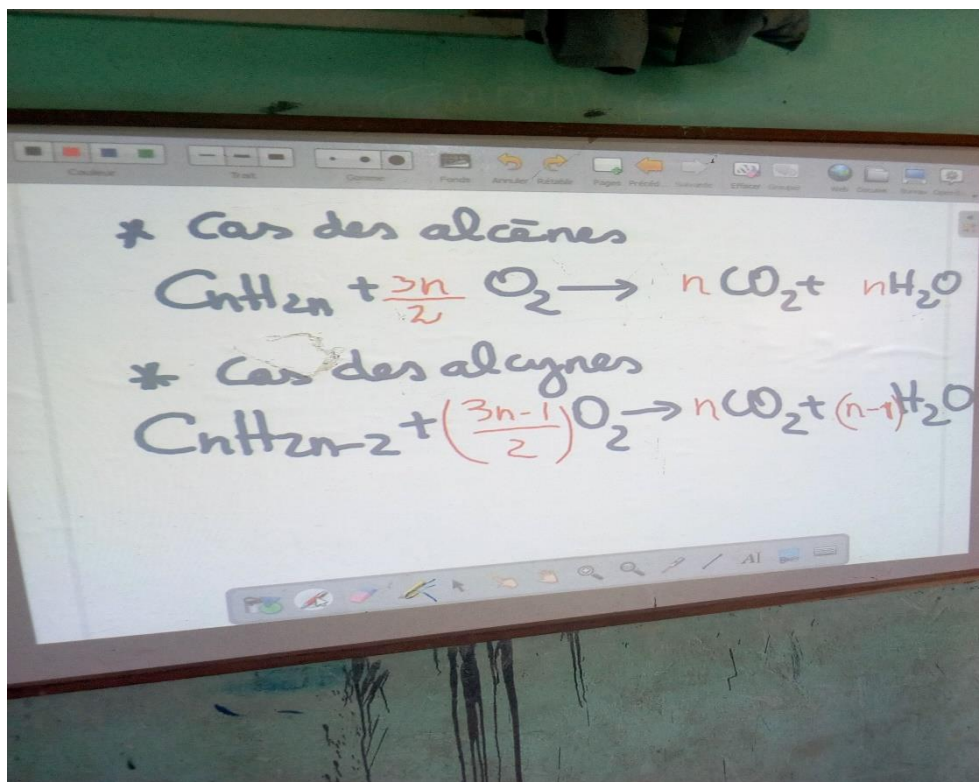 Couleur Trait Gomme Fonds Annuler Rétablir Pages Précéd... Suivante Effacer Web
* Cas des alcènes
CnH2n + 3n/2 O2 → nCO2 + nH2O
* Cas des alcynes
CnH2n-2 + (3n-1/2)O2 → nCO2 + (n-1)H2O
AI